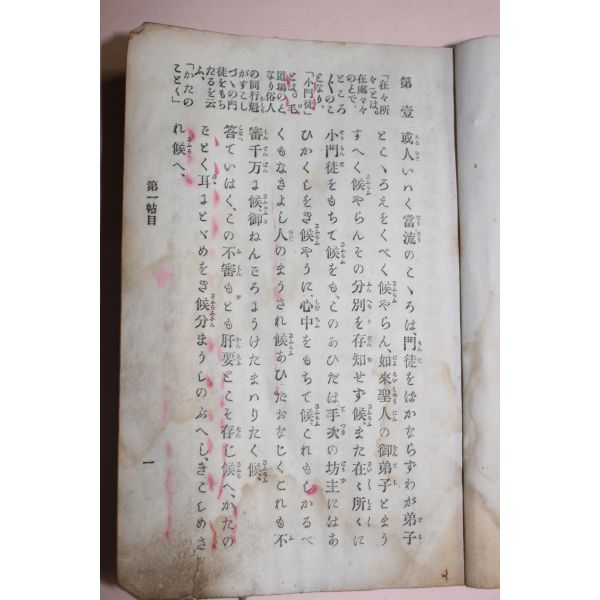 第壹
或人いはく當流のこゝろは、門徒をばかならずわが弟子
とこゝろえをくべく候やらん如來聖人の御弟子とまう
すべく候やらんその分別を存知せず候また在々所々に
小門徒をもちて候をも、このあひだは手次の坊主にはあ
ひかくしをき候やうに、心中をもちて候これもしかるべ
くもなきよし人のまうされ候あひだおなじくこれも不
審千万に候御ねんごろにうけたまはりたく候、
答ていはく、この不審もとも肝要とこそ存じ候へ、かたの
ごとく耳にとゞめをき候分まうしのぶべし、きこしめさ
れ候へ、
「在々所
々」とは、
在處々々
のことで、
ところ
〴〵のこ
となり、
「小門徒」
とは。毛
道場のと
なり俗人
の同行魁
がすこし
づゝの門
徒をもち
たるを云
ふ、
「かたの
ことく」
第一帖目
一